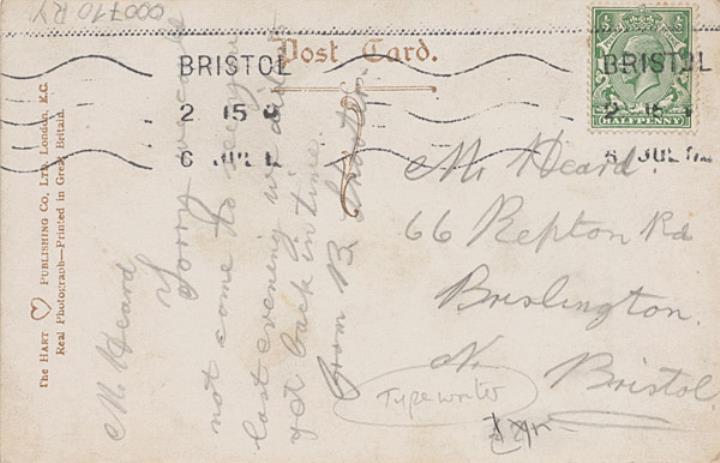 000710 RY
Post Card.
BRISTOL
2 15
6 JUL 1
BRISTOL
2 15
6 JUL 1
HALFPENNY
The HART PUBLISHING CO, LTD. London, E.C.
Real Photograph—Printed in Great Britain.
M. Heard
Sorry we could
not come to see you
last evening we did
get back in time.
from B. Shooter.
Mr Heard.
66 Repton Rd
Brislington.
Nr Bristol
Typewriter